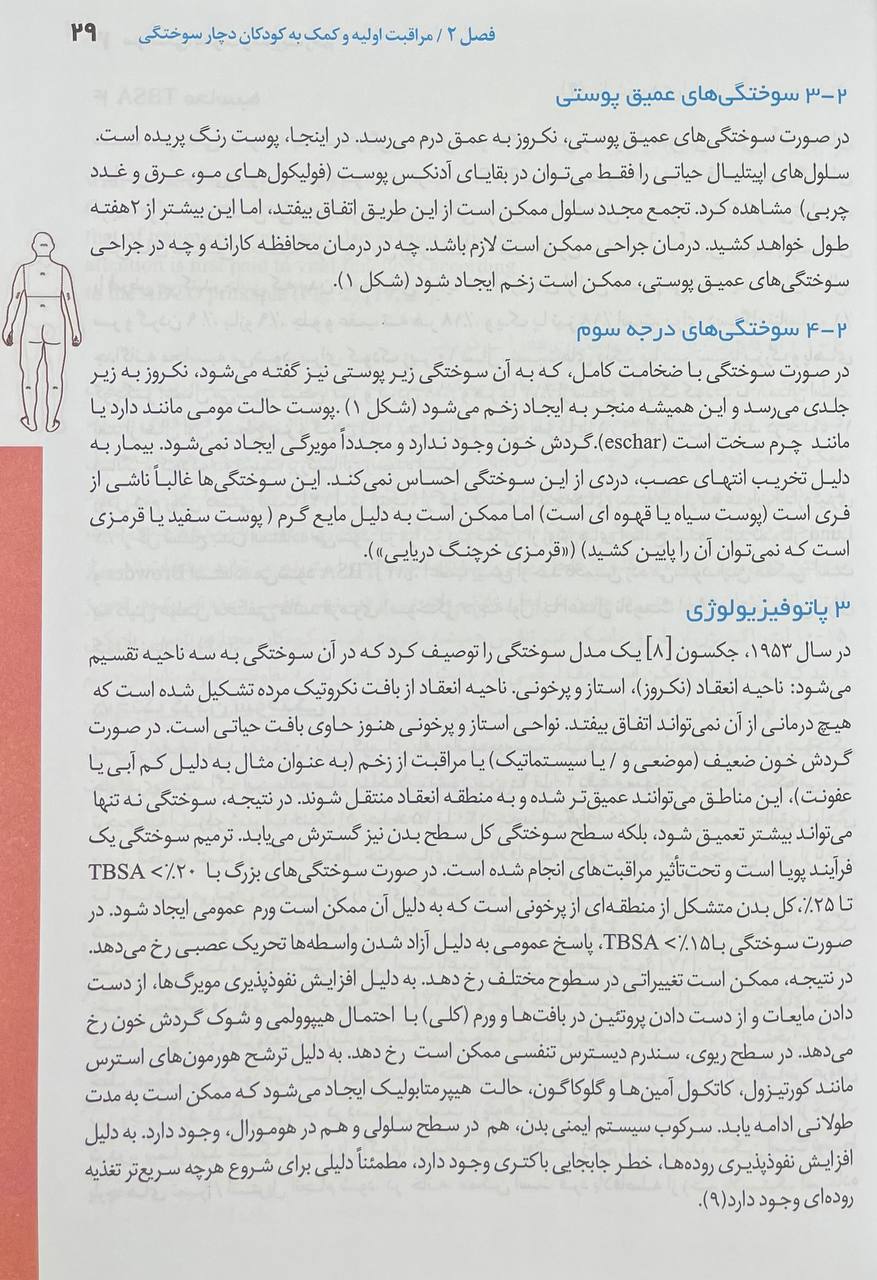 فصل ۲ / مراقبت اولیه و کمک به کودکان دچار سوختگی ۲۹
۲-۳ سوختگی‌های عمیق پوستی
در صورت سوختگی‌های عمیق پوستی، نکروز به عمق درم می‌رسد. در اینجا، پوست رنگ پریده است.
سلول‌های اپیتلیال حیاتی را فقط می‌توان در بقایای آدنکس پوست (فولیکول‌های مو، عرق و غدد
چربی) مشاهده کرد. تجمع مجدد سلول ممکن است از این طریق اتفاق بیفتد، اما این بیشتر از ۲هفته
طول خواهد کشید. درمان جراحی ممکن است لازم باشد. چه در درمان محافظه کارانه و چه در جراحی
سوختگی‌های عمیق پوستی، ممکن است زخم ایجاد شود (شکل ۱).
۲-۴ سوختگی‌های درجه سوم
در صورت سوختگی با ضخامت کامل، که به آن سوختگی زیر پوستی نیز گفته می‌شود، نکروز به زیر
جلدی می‌رسد و این همیشه منجر به ایجاد زخم می‌شود (شکل ۱) .پوست حالت مومی مانند دارد یا
مانند چرم سخت است (eschar).گردش خون وجود ندارد و مجدداً مویرگی ایجاد نمی‌شود. بیمار به
دلیل تخریب انتهای عصب، دردی از این سوختگی احساس نمی‌کند. این سوختگی‌ها غالباً ناشی از
فری است (پوست سیاه یا قهوه ای است) اما ممکن است به دلیل مایع گرم ( پوست سفید یا قرمزی
است که نمی‌توان آن را پایین کشید) («قرمزی خرچنگ دریایی»).
۳ پاتوفیزیولوژی
در سال ۱۹۵۳، جکسون [۸] یک مدل سوختگی را توصیف کرد که در آن سوختگی به سه ناحیه تقسیم
می‌شود: ناحیه انعقاد (نکروز)، استاز و پرخونی. ناحیه انعقاد از بافت نکروتیک مرده تشکیل شده است که
هیچ درمانی از آن نمی‌تواند اتفاق بیفتد. نواحی استاز و پرخونی هنوز حاوی بافت حیاتی است. در صورت
گردش خون ضعیف (موضعی و / یا سیستماتیک) یا مراقبت از زخم (به عنوان مثال به دلیل کم آبی یا
عفونت)، این مناطق می‌توانند عمیق‌تر شده و به منطقه انعقاد منتقل شوند. در نتیجه، سوختگی نه تنها
می‌تواند بیشتر تعمیق شود، بلکه سطح سوختگی کل سطح بدن نیز گسترش می‌یابد. ترمیم سوختگی یک
فرآیند پویا است و تحت‌تأثیر مراقبت‌های انجام شده است. در صورت سوختگی‌های بزرگ با ۲۰٪< TBSA
تا ۲۵٪،کل بدن متشکل از منطقه‌ای از پرخونی است که به دلیل آن ممکن است ورم عمومی ایجاد شود. در
صورت سوختگی با۱۵٪< TBSA، پاسخ عمومی به دلیل آزاد شدن واسطه‌ها تحریک عصبی رخ می‌دهد.
در نتیجه، ممکن است تغییراتی در سطوح مختلف رخ دهد. به دلیل افزایش نفوذپذیری مویرگ‌ها، از دست
دادن مایعات و از دست دادن پروتئین در بافت‌ها و ورم (کلی) با احتمال هیپوولمی و شوک گردش خون رخ
می‌دهد. در سطح ریوی، سندرم دیسترس تنفسی ممکن است رخ دهد. به دلیل ترشح هورمون‌های استرس
مانند کورتیزول، کاتکول آمین‌ها و گلوکاگون، حالت هیپرمتابولیک ایجاد می‌شود که ممکن است به مدت
طولانی ادامه یابد. سرکوب سیستم ایمنی بدن، هم در سطح سلولی و هم در هومورال، وجود دارد. به دلیل
افزایش نفوذپذیری روده‌ها، خطر جابجایی باکتری وجود دارد، مطمئناً دلیلی برای شروع هرچه سریع‌تر تغذیه
روده‌ای وجود دارد(۹).